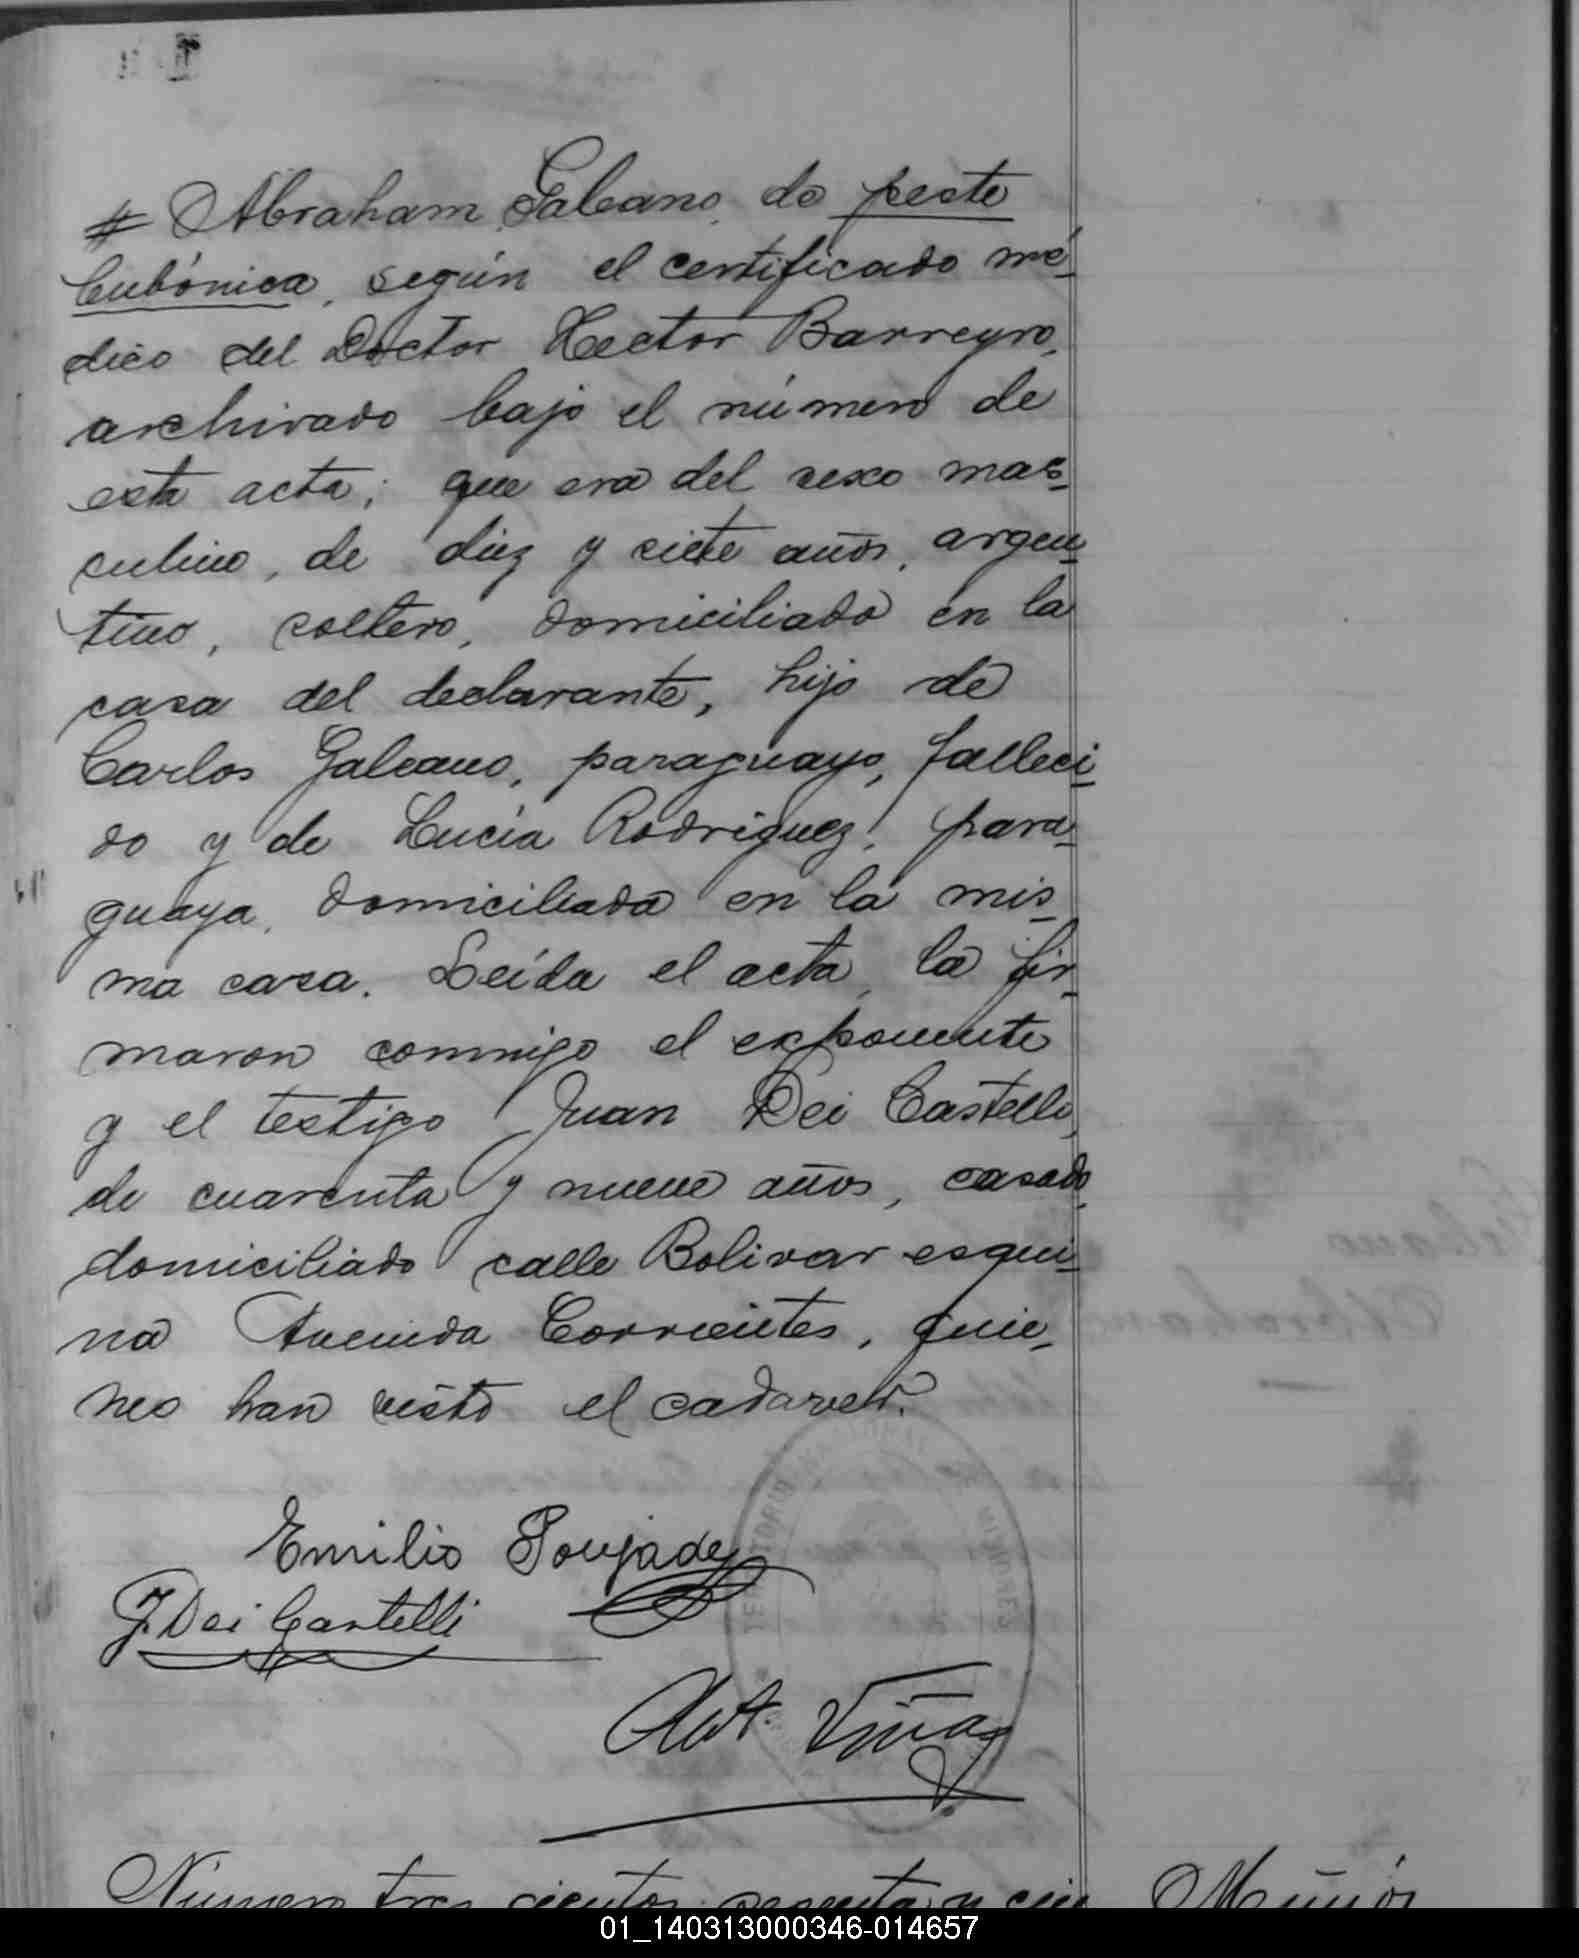 # Abraham Galeano, de peste
bubónica, según el certificado mé-
dico del Doctor Hector Barreyro,
archivado bajo el número de
esta acta; que era del sexo mas-
culino, de diez y siete años, argen-
tino, soltero, domiciliado en la
casa del declarante, hijo de
Carlos Galeano, paraguayo, falleci-
do y de Lucía Rodriguez, para-
guaya, domiciliada en la mis-
ma casa. Leída el acta, la fir-
maron conmigo el exponente
y el testigo Juan Dei Castelli,
de cuarenta y nueve años, casado,
domiciliado calle Bolivar esqui-
na Avenida Corrientes, quie-
nes han visto el cadaver.
TERRITORIO NACIONAL DE MISIONES
Emilio Soujade
J. Dei Castelli
Ant. Viña
Número tres cientos y
Muñoz
01_140313000346-014657